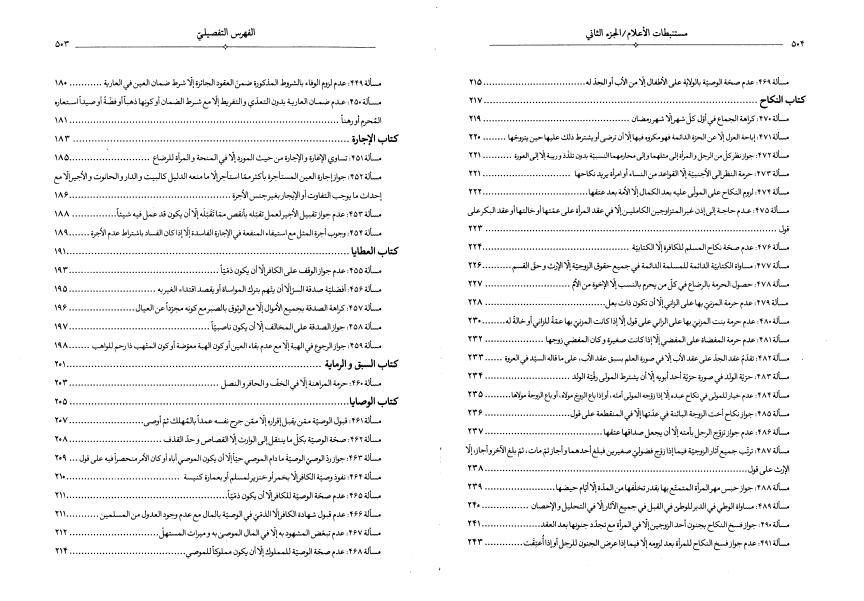 الفهرس التفصيليّ
٥٠٣
مسألة ٤٤٩: عدم لزوم الوفاء بالشروط المذكورة ضمن العقود الجائزة إلّا شرط ضمان العين في العارية ........... ١٨٠
مسألة ٤٥٠: عدم ضمان العارية بدون التعدّي والتفريط إلّا مع شرط الضمان أو كونها ذهباً أو فضّة أو صيداً استعاره
المُحرم أو رهناً ........... ١٨١
كتاب الإجارة ........... ١٨٣
مسألة ٤٥١: تساوي الإعارة والإجارة من حيث المورد إلّا في المنحة والمرأة للرضاع ........... ١٨٥
مسألة ٤٥٢: جواز إجارة العين المستأجرة بأكثر ممّا استأجر إلّا ما منعه الدليل كالبيت والدار والحانوت والأجير إلّا مع
إحداث ما يوجب التفاوت أو الإيجار بغير جنس الأجرة ........... ١٨٦
مسألة ٤٥٣: عدم جواز تقبيل الأجير لعمل تقبّله بأنقص ممّا تَقَبّلَه إلّا أن يكون قد عمل فيه شيئاً ........... ١٨٨
مسألة ٤٥٤: وجوب أجرة المثل مع استيفاء المنفعة في الإجارة الفاسدة إلّا إذا كان الفساد باشتراط عدم الأجرة ....... ١٨٩
كتاب العطايا ........... ١٩١
مسألة ٤٥٥: عدم جواز الوقف على الكافر إلّا أن يكون ذمّيّاً ........... ١٩٣
مسألة ٤٥٦: أفضليّة صدقة السرّ إلّا أن يتّهم بترك المواساة أو يقصد اقتداء الغير به ........... ١٩٥
مسألة ٤٥٧: كراهة الصدقة بجميع الأموال إلّا مع الوثوق بالصبر مع كونه مجرّداً عن العيال ........... ١٩٦
مسألة ٤٥٨: عدم جواز الصدقة على المخالف إلّا أن يكون ناصبيّاً ........... ١٩٧
مسألة ٤٥٩: جواز الرجوع في الهبة إلّا مع عدم بقاء العين أو كون الهبة معوّضة أو كون المتّهب ذا رحم للواهب ....... ١٩٨
كتاب السبق و الرماية ........... ٢٠١
مسألة ٤٦٠: حرمة المراهنة إلّا في الخفّ والحافر والنصل ........... ٢٠٣
كتاب الوصايا ........... ٢٠٥
مسألة ٤٦١: قبول الوصيّة ممّن يقبل إقراره إلّا ممّن جرح نفسه عمداً بالمُهلك ثمّ أوصى ........... ٢٠٧
مسألة ٤٦٢: صحّة الوصيّة بكلّ ما ينتقل إلى الوارث إلّا القصاص و حدّ القذف ........... ٢٠٨
مسألة ٤٦٣: جواز ردّ الوصيّ الوصيّة ما دام الموصي حيّاً إلّا أن يكون الموصي أباه أو كان الأمر منحصراً فيه على قول ... ٢٠٩
مسألة ٤٦٤: نفوذ وصيّة الكافر إلّا بخمر أو خنزير لمسلم أو بعمارة كنيسة ........... ٢١٠
مسألة ٤٦٥: عدم صحّة الوصيّة للكافر إلّا أن يكون ذمّيّاً ........... ٢١١
مسألة ٤٦٦: عدم قبول شهادة الكافر إلّا الذمّيّ في الوصيّة بالمال مع عدم وجود العدول من المسلمين ........... ٢١١
مسألة ٤٦٧: عدم تبعّض المشهود به إلّا في المال الموصى به و ميراث المستهلّ ........... ٢١٢
مسألة ٤٦٨: عدم صحّة الوصيّة للمملوك إلّا أن يكون مملوكاً للموصي ........... ٢١٤
مستنبطات الأعلام/الجزء الثاني
٥٠٤
مسألة ٤٦٩: عدم صحّة الوصيّة بالولاية على الأطفال إلّا من الأب أو الجدّ له ........... ٢١٥
كتاب النكاح ........... ٢١٧
مسألة ٤٧٠: كراهة الجماع في أوّل كلّ شهر إلّا شهر رمضان ........... ٢١٩
مسألة ٤٧١: إباحة العزل إلّا عن الحرّة الدائمة فهو مكروه فيها إلّا أن ترضى أو يشترط ذلك عليها حين يتزوّجها ...... ٢٢٠
مسألة ٤٧٢: جواز نظر كلّ من الرجل و المرأة إلى مثلهما و إلى محارمهما النسبيّة بدون تلذّذ و ريبة إلّا إلى العورة ...... ٢٢١
مسألة ٤٧٣: حرمة النظر إلى الأجنبيّة إلّا القواعد من النساء أو امرأة يريد نكاحها ........... ٢٢١
مسألة ٤٧٤: لزوم النكاح على المولّى عليه بعد الكمال إلّا الأمة بعد عتقها ........... ٢٢٢
مسألة ٤٧٥: عدم حاجة إلى إذن غير المتزاوجين الكاملين إلّا في عقد المرأة على عمّتها أو خالتها أو عقد البكر على
قول ........... ٢٢٣
مسألة ٤٧٦: عدم صحّة نكاح المسلم للكافرة إلّا الكتابيّة ........... ٢٢٤
مسألة ٤٧٧: مساواة الكتابيّة الدائمة للمسلمة الدائمة في جميع حقوق الزوجيّة إلّا الإرث و حقّ القسم ........... ٢٢٦
مسألة ٤٧٨: حصول الحرمة بالرضاع في كلّ من يحرم بالنسب إلّا الإخوة من الأمّ ........... ٢٢٧
مسألة ٤٧٩: عدم حرمة المزنيّ بها على الزاني إلّا أن تكون ذات بعل ........... ٢٢٨
مسألة ٤٨٠: عدم حرمة بنت المزنيّ بها على الزاني على قول إلّا إذا كانت المزنيّ بها عمّة للزاني أو خالة له ........... ٢٣٠
مسألة ٤٨١: عدم حرمة المفضاة على المفضي إلّا إذا كانت صغيرة و كان المفضي زوجها ........... ٢٣٢
مسألة ٤٨٢: تقدّم عقد الجدّ على عقد الأب إلّا في صورة العلم بسبق عقد الأب، على ما قاله السيّد في العروة ...... ٢٣٣
مسألة ٤٨٣: حرّيّة الولد في صورة حرّيّة أحد أبويه إلّا أن يشترط المولى رقّيّة الولد ........... ٢٣٤
مسألة ٤٨٤: عدم خيار للمولى في نكاح عبده إلّا إذا زوّجه المولى أمته، أو إذا باع الزوج مولاه، أو باع الزوجة مولاها ...... ٢٣٥
مسألة ٤٨٥: جواز نكاح أخت الزوجة البائنة في عدّتها إلّا في المنقطعة على قول ........... ٢٣٦
مسألة ٤٨٦: عدم جواز تزوّج الرجل بأمته إلّا أن يجعل صداقها عتقها ........... ٢٣٧
مسألة ٤٨٧: ترتّب جميع آثار الزوجيّة فيما إذا زوّج فضوليّ صغيرين فبلغ أحدهما و أجاز ثمّ مات، ثمّ بلغ الآخر و أجاز، إلّا
الإرث على قول ........... ٢٣٨
مسألة ٤٨٨: جواز حبس مهر المرأة المتمتّع بها بقدر تخلّفها من المدّة إلّا أيّام حيضها ........... ٢٣٩
مسألة ٤٨٩: مساواة الوطي في الدبر للوطي في القبل في جميع الآثار إلّا في التحليل و الإحصان ........... ٢٤٠
مسألة ٤٩٠: جواز فسخ النكاح بجنون أحد الزوجين إلّا في المرأة مع تجدّد جنونها بعد العقد ........... ٢٤١
مسألة ٤٩١: عدم جواز فسخ النكاح للمرأة بعد لزومه إلّا فيما إذا عرض الجنون للرجل أو إذا أُعتِقَت ........... ٢٤٣